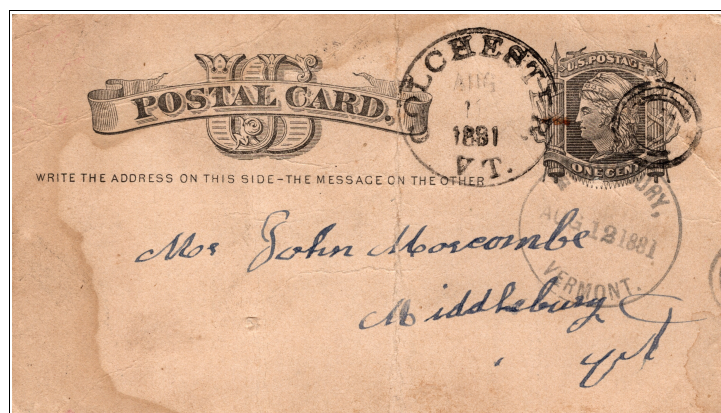 US
POSTAL CARD.
WRITE THE ADDRESS ON THIS SIDE-THE MESSAGE ON THE OTHER
COLCHESTER
AUG
1881
VT.
U.S. POSTAGE
ONE CENT
BURY,
AUG 12 1881
VERMONT.
Mr John Morcombe
Middlebury
Vt